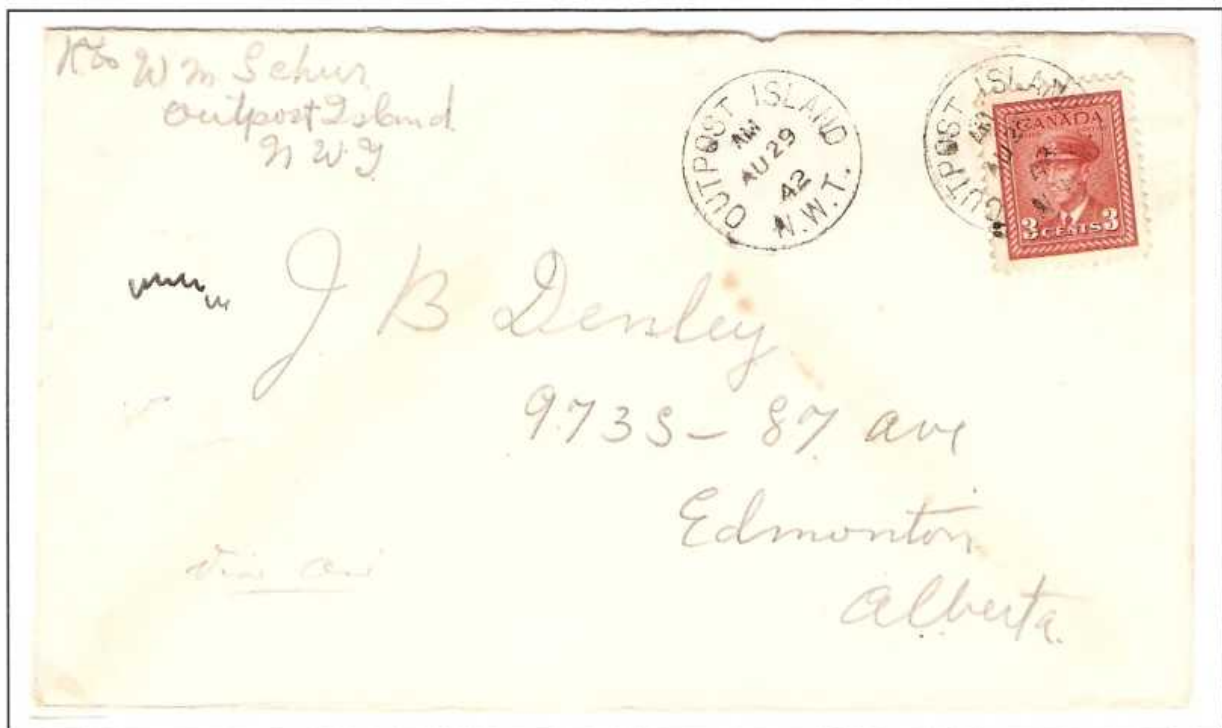 Rto Wm Schur
Outpost Island
N W T
OUTPOST ISLAND
AM
AU 29
42
N.W.T.
OUTPOST ISLAN
AU 2
CANADA
3 CENTS 3
J B Denley
9735 - 87 ave
Edmonton
Alberta.
Via air